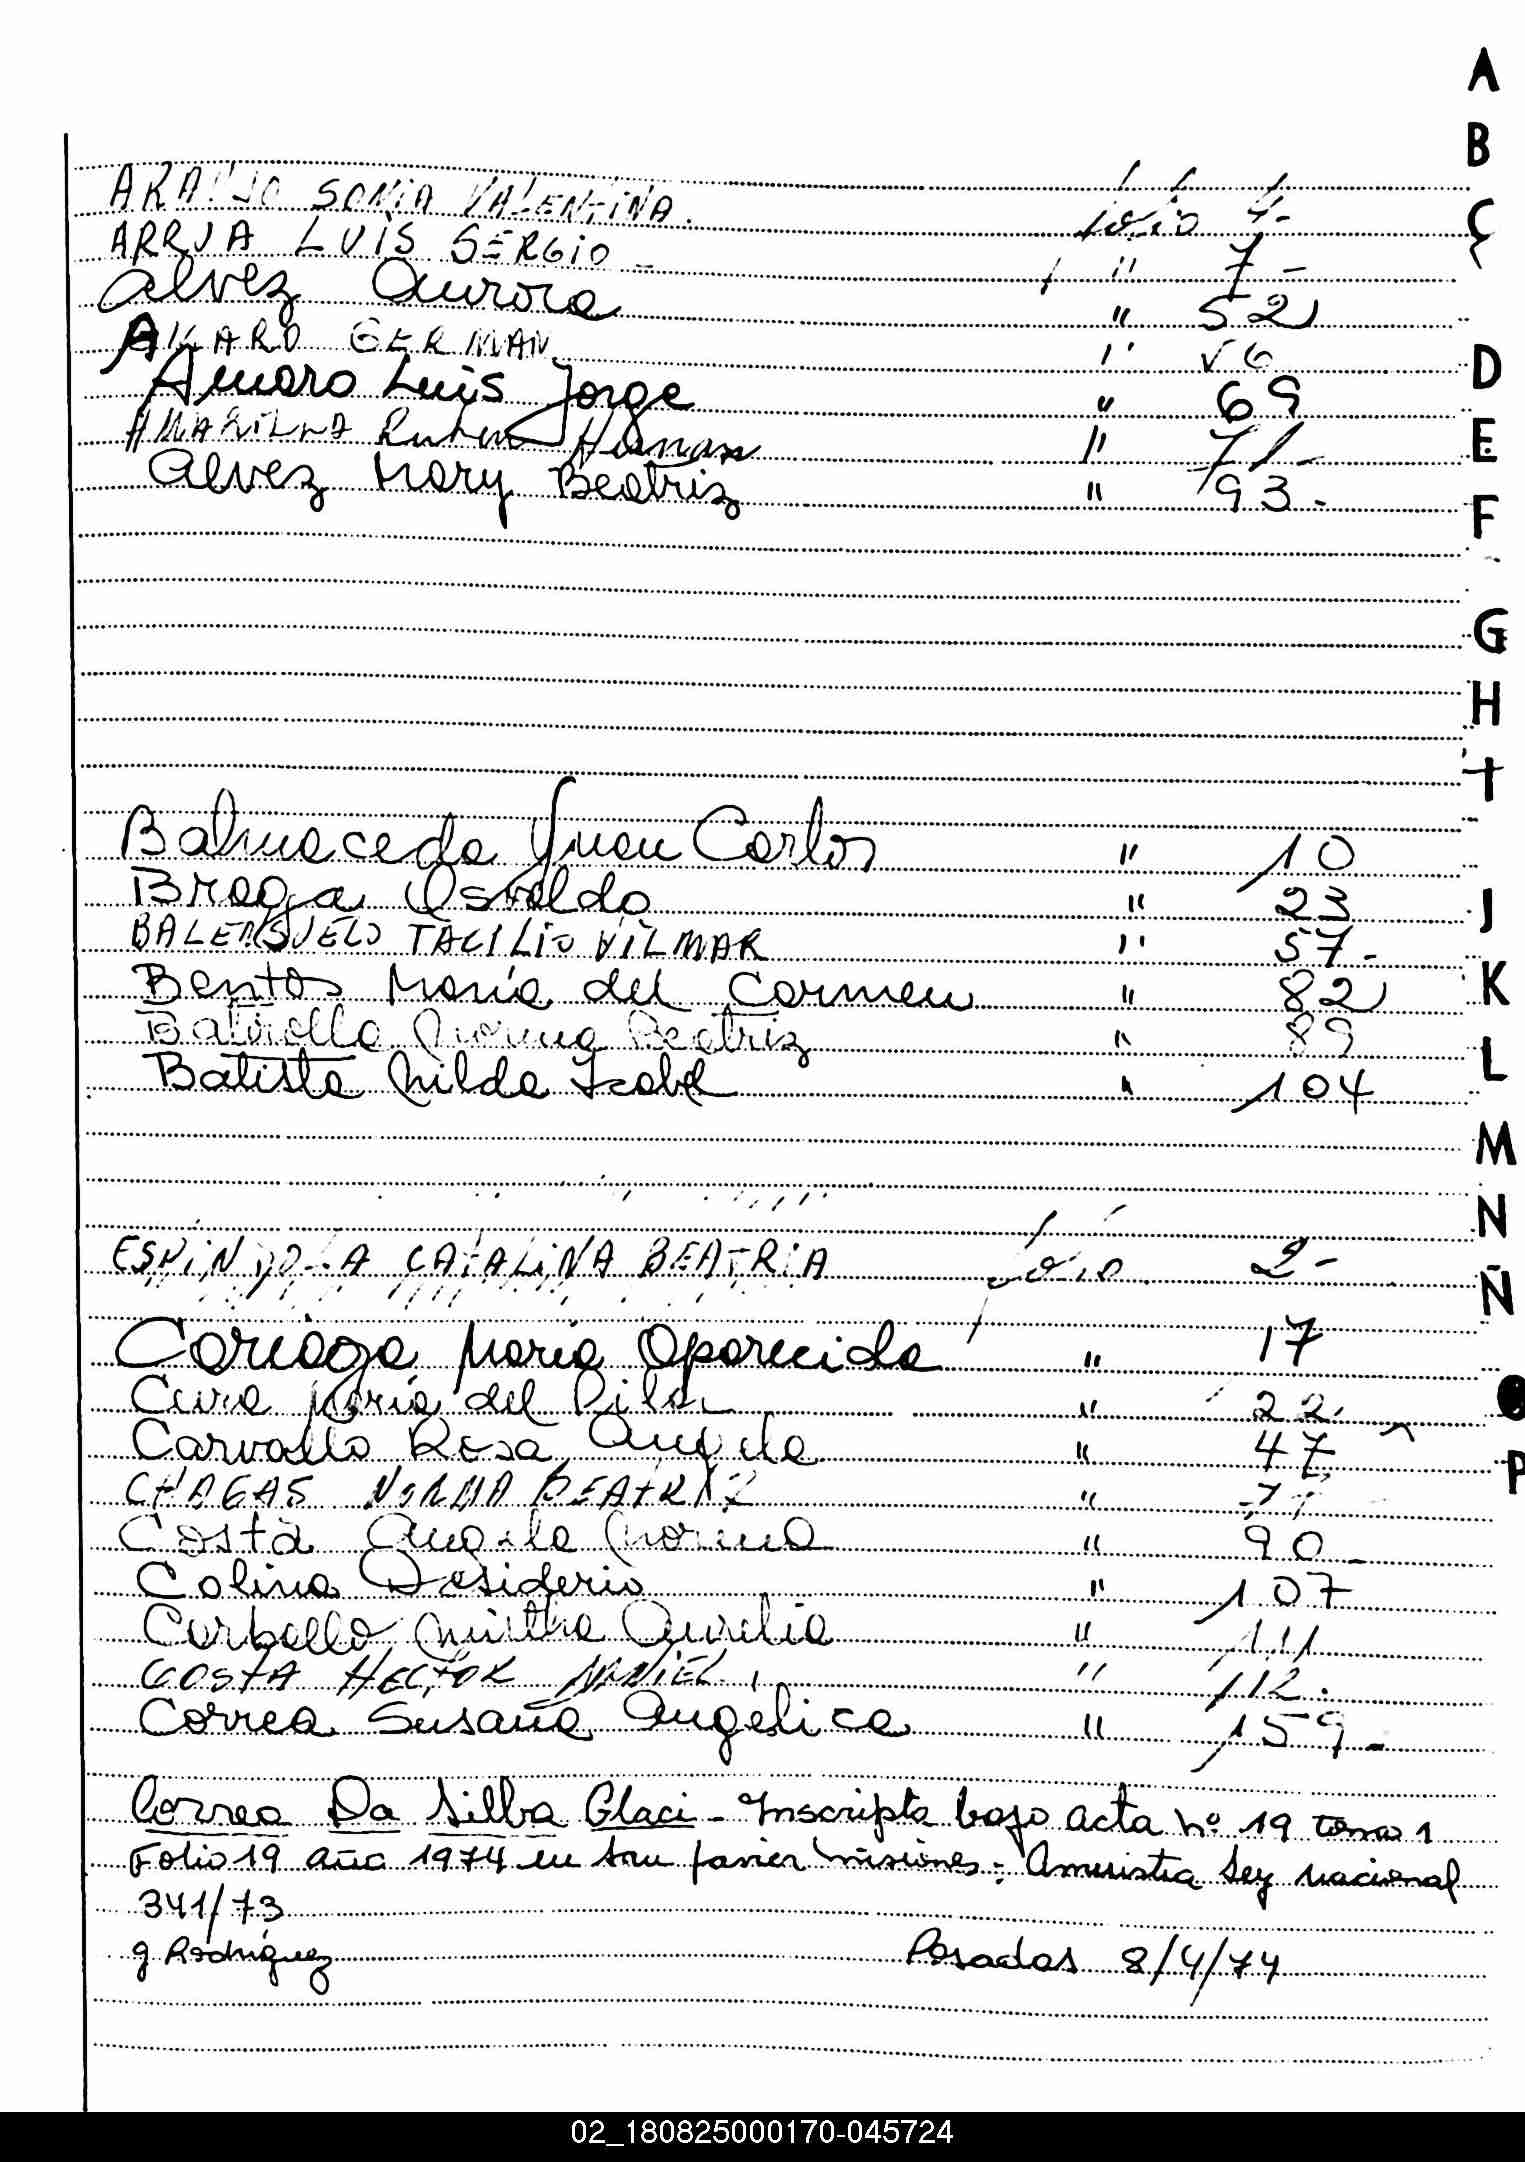 ARAUJO SONIA VALENTINA. folio 4-
ARRUA LUIS SERGIO - " 7-
Alvez Aurora " 52
GERMAN " 56
Amaro Luis Jorge " 69
AMARILLA Ruben Hernan " 71-
Alvez Mary Beatriz " 93-
Balmaceda Juan Carlos " 10
Braga Osvaldo " 23
BALENSUELO TACILIO VILMAR " 57-
Bentos Maria del Carmen " 82
Norma Beatriz " 89
Batista Nilda Isabel " 104
ESPINDOLA CATALINA BEATRIA folio 2-
Maria Aparecida " 17
Maria del Pilar " 22
Carvallo Rosa Angela " 47
CHAGAS NORMA BEATRIZ "
Costa Angela Norma " 90-
Colina Desiderio " 107
Carballo Mirtha Aurelia " 111
COSTA HECTOR DANIEL " 112.
Correa Susana Angélica " 159-
Correa Da Silba Glaci - Inscripta bajo acta nº 19 tomo 1
Folio 19 año 1974 en San Javier Misiones - Amnistia Ley nacional
341/73
g Rodriguez Posadas 8/4/74
A
B
C
D
E
F
G
H
I
J
K
L
M
N
Ñ
P
02_180825000170-045724